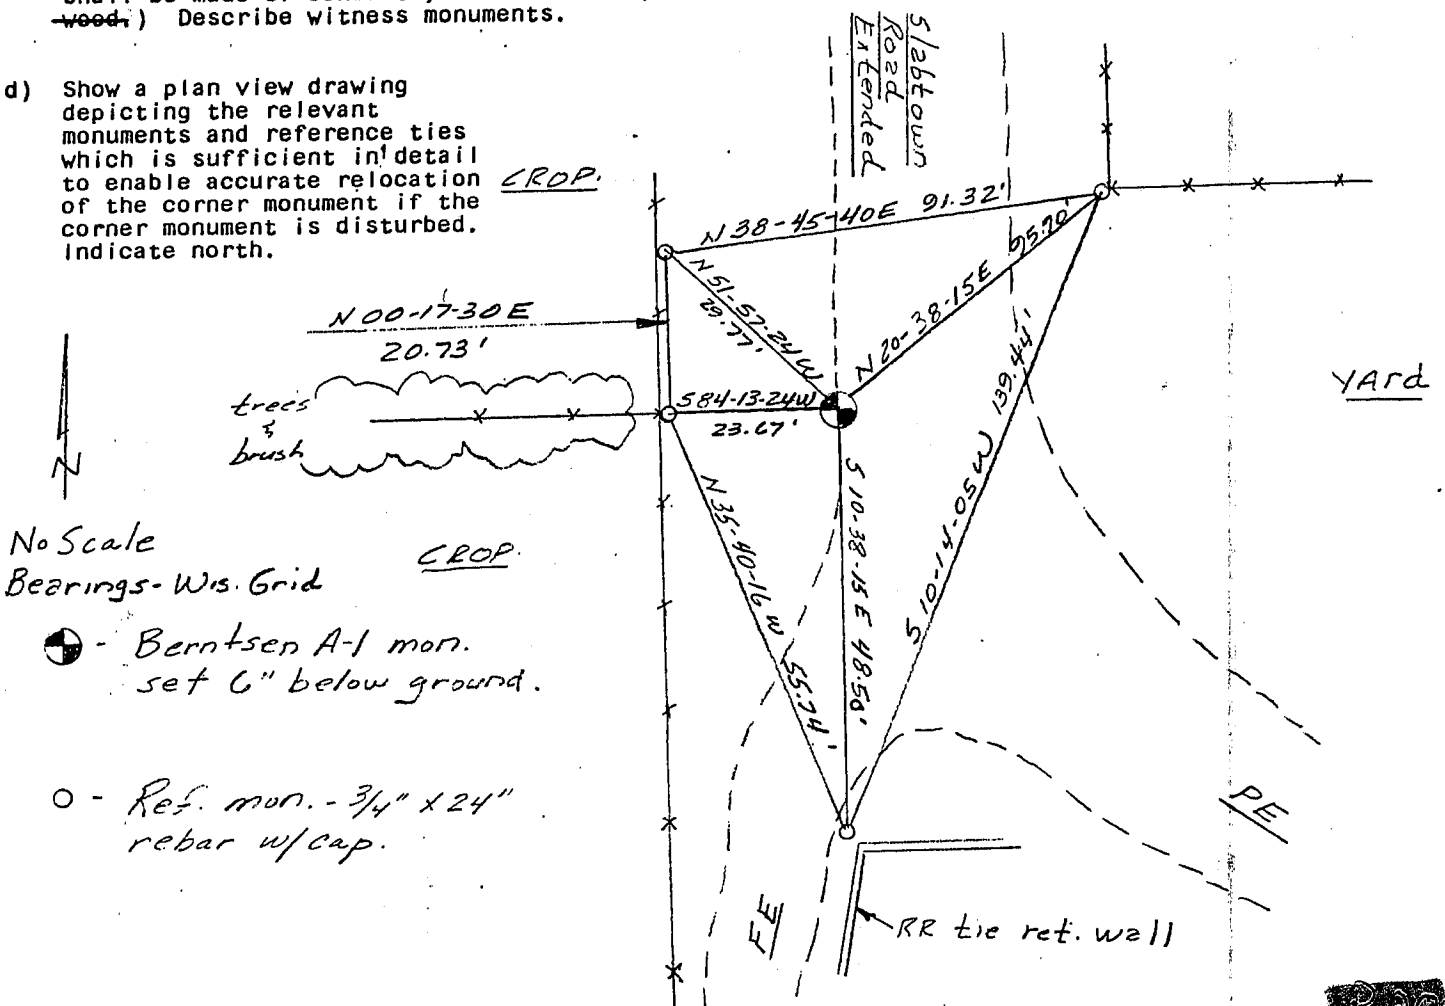 wood.) Describe witness monuments.
d) Show a plan view drawing
depicting the relevant
monuments and reference ties
which is sufficient in detail
to enable accurate relocation
of the corner monument if the
corner monument is disturbed.
Indicate north.
Slabtown
Road
Extended
CROP.
N 38-45-40E 91.32'
N 51-57-24W
29.77'
N 20-38-15E 95.70'
N 00-17-30E
20.73'
S 84-13-24W
23.67'
trees
&
brush
YArd
N
S 10-38-15 E 48.56'
S 10-14-05 W 139.44'
N 35-40-16 W 55.74'
No Scale
Bearings - Wis. Grid
CROP.
- Berntsen A-1 mon.
set 6" below ground.
- Ref. mon. - 3/4" X 24"
rebar w/cap.
PE
FE
RR tie ret. wall